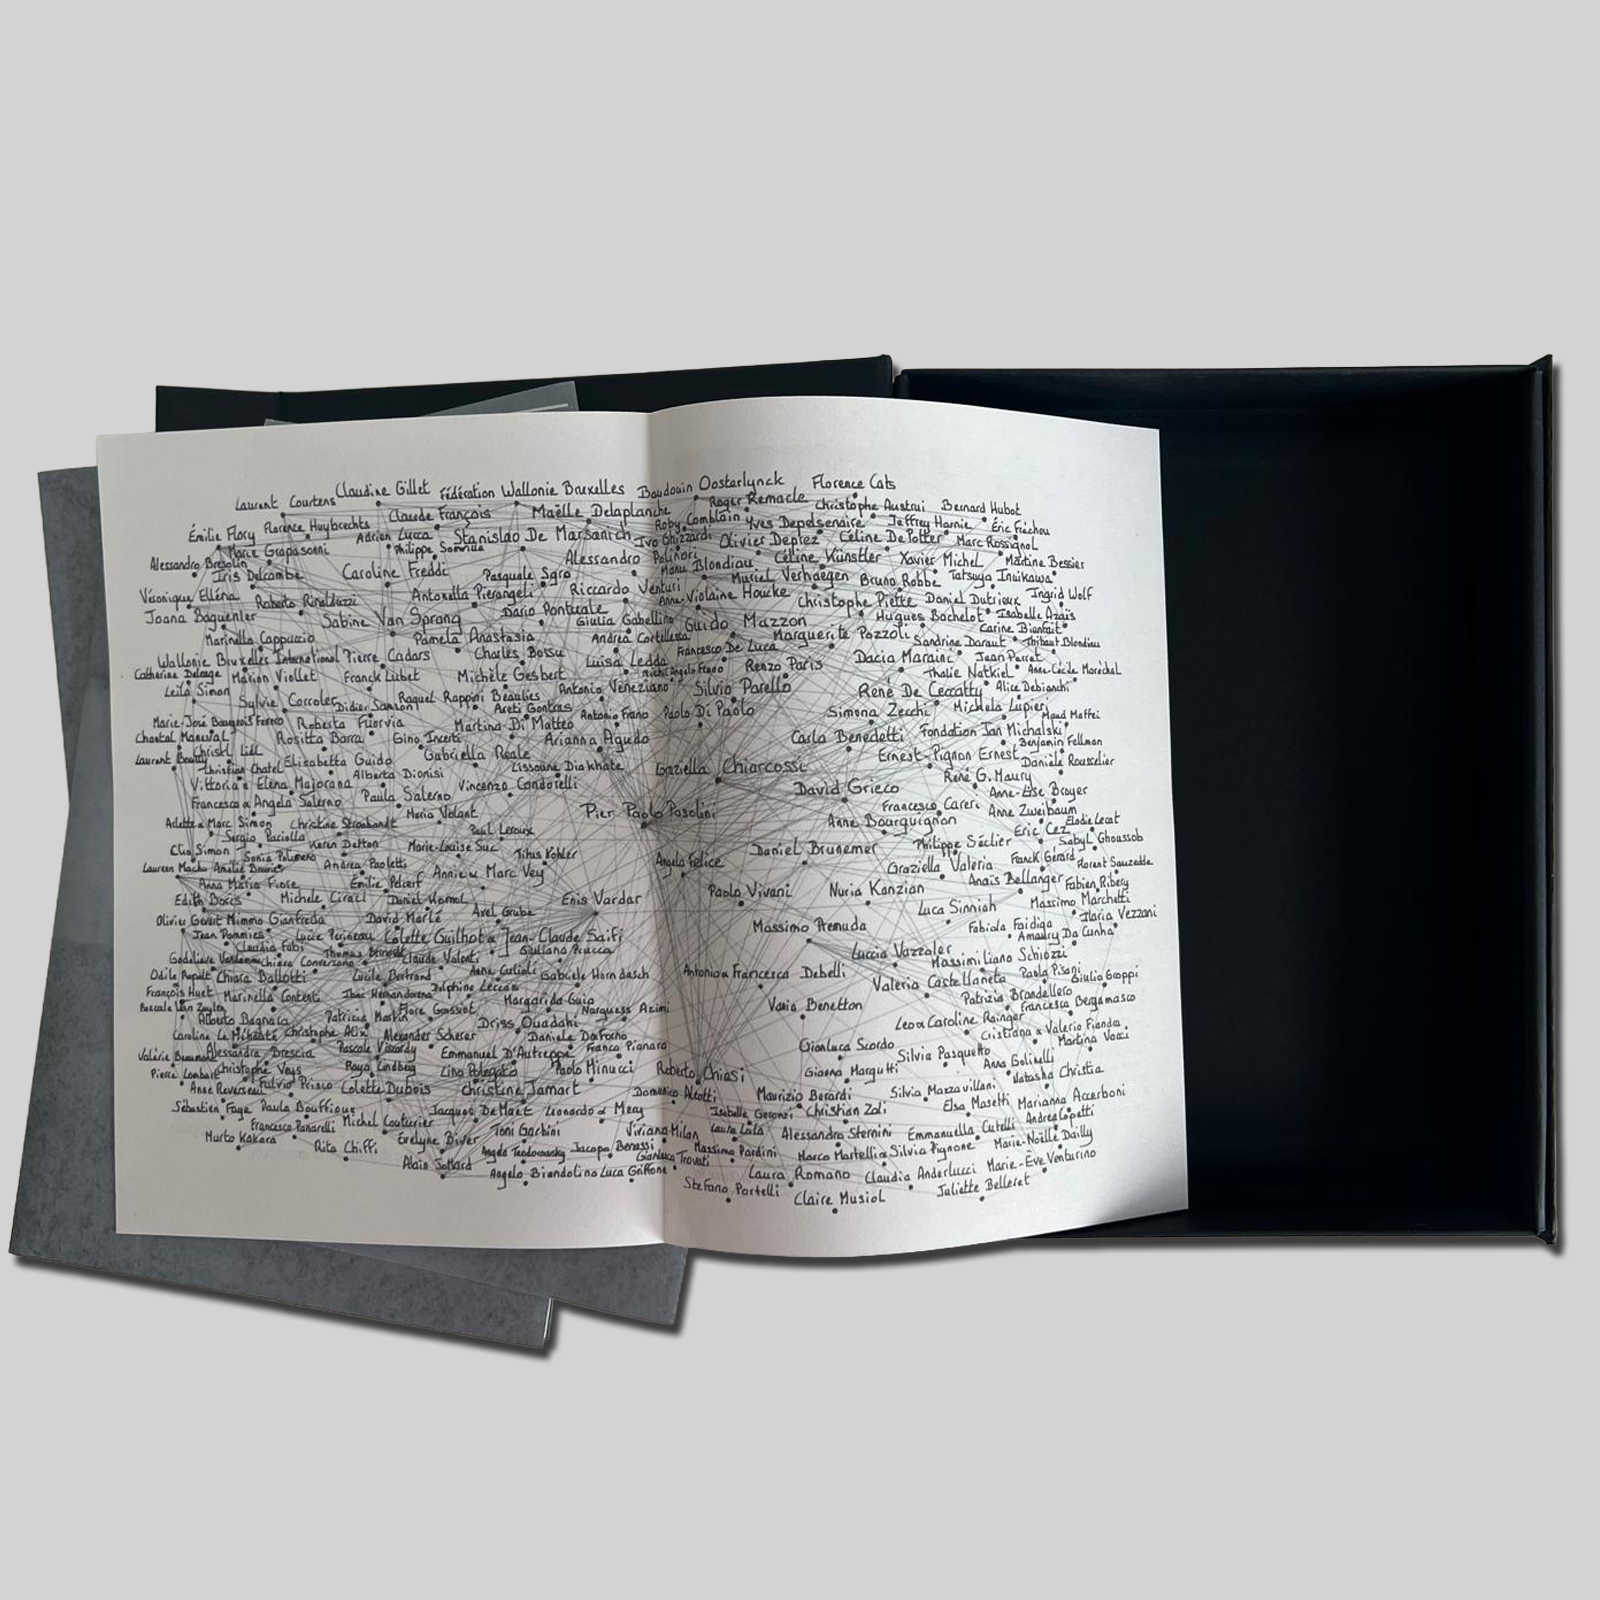 Claudine Gillet Fédération Wallonie Bruxelles Baudouin Oosterlynck Florence Cats
Laurent Courtens Roger Remacle Christophe Austrui Bernard Hubot
Claude François Maëlle Delaplanche
Émilie Flory Florence Huybrechts Roby Comblain Yves Depelsenaire Jeffrey Harnie Éric Fréchou
Adrien Lucca Stanislao De Marsanich Ivo Ghizzardi Olivier Deprez Céline De Potter Marc Rossignol
Marie Grapasonni Philippe Sonville
Alessandro Bresolin Alessandro Polinori Manu Blondiau Céline Künstler Xavier Michel Martine Bessier
Iris Delcombe Caroline Freddi Pasquale Sgro Muriel Verhaegen Bruno Robbe Tatsuya Inuikawa
Véronique Elléna Roberto Rinalduzzi Antonella Pierangeli Riccardo Venturi Anne-Violaine Houcke Christophe Piette Daniel Dutrieux Ingrid Wolf
Joana Baguenier Sabine Van Sprang Dario Pontuale Giulia Gabellino Guido Mazzon Hugues Bachelot Isabelle Azaïs
Marinella Cappuccio Pamela Anastasia Andrea Cortellessa Marguerite Pozzoli Sandrine Daraut Carine Bienfait Thibaut Blondiau
Charles Bossu Francesco De Luca
Wallonie Bruxelles International Pierre Cadars Luisa Ledda Renzo Paris Dacia Maraini Jean Perret
Catherine Deleage Marion Viollet Franck Lubet Michèle Gesbert Thalie Natkiel Anne-Cécile Maréchal
Leila Simon Antonio Veneziano Silvio Parello René De Ceccatty Alice Debianchi
Sylvie Corroler Didier Samson Raquel Rappini Beaulies Areti Gontras Paolo Di Paolo Simona Zecchi Michela Lupieri Maud Maffei
Marie-José Bourgeois Ferrero Roberta Fiorvia Martina Di Matteo Antonio Frano
Chantal Maneval Rositta Barra Gino Incerti Arianna Agudo Carla Benedetti Fondation Jan Michalski Benjamin Fellman
Christl Lidl Elisabetta Guido Gabriella Reale Ernest-Pignon Ernest Danièle Rousselier
Christian Chatel Alberta Dionisi Lissoune Diakhate Graziella Chiarcossi René G. Maury
Vittoria e Elena Majorana Vincenzo Condorelli David Grieco Anne-Lise Broyer
Francesco e Angela Salerno Paula Salerno Francesco Careri Anne Zweibaum
Maria Volant Pier Paolo Pasolini Anne Bourguignon
Arlette et Marc Simon Christine Stroobandt Paul Leroux Eric Cez Elodie Lecat
Sergio Paciolla Karen Dutton Daniel Brunemer Philippe Séclier Sabyl Ghoussob
Clio Simon Sonia Palumeno Marie-Louise Suc Titus Kohler Angela Felice Graziella Valeria Franck Gérard Florent Souzedde
Andrea Paoletti Annie et Marc Vey Anaïs Bellanger Fabien Ribery
Anna Maria Fiore Émilie Pelcerf Paolo Vivani Nuria Kanzian Massimo Marchetti
Edith Doors Michele Ciraci Enis Vardar Luca Sinnioh Ilaria Vezzani
Olivier Gevart Mimmo Gianfreda David Marlé Axel Grube Massimo Premuda Fabiola Faidiga
Jean Pommies Lucie Périneau Colette Guilhot et Jean-Claude Saïfi Amaury Da Cunha
Claudia Fabi Giuliana Prucca Luccia Vazzoler
Chiara Conversano Claude Valenti Massimiliano Schiozzi
Odile Rapult Chiara Ballotti Lucile Bertrand Anne Carlioli Gabriele Horndasch Antonio e Francesca Debelli Valeria Castellaneta Paola Pisani Giulio Groppi
François Huet Marinella Contenti Delphine Leccas Patrizia Brandellero
Pascale Van Zuylen Flore Grassiot Margarida Guia Varia Benetton Francesca Bergamasco
Alberto Bagnara Patrizia Martin Narguess Azimi Leo e Caroline Rainger
Caroline Le Méhauté Christophe Alix Driss Ouadahi Cristiana e Valerio Fianda
Alexander Scherer Daniela Daforno Gianluca Scordo Martina Voci
Valérie Beaumont Alessandra Brescia Pascale Viscardy Emmanuel D'Autreppe Franco Pianaro Silvia Pasquetto
Pierre Lombart Christophe Veys Raya Lindberg Lino Polegato Paolo Minucci Roberto Chiesi Gioena Margutti Anna Golinelli
Anne Reverseau Fulvio Prioco Natasha Christia
Colette Dubois Christine Jamart Domenico Aleotti Maurizio Berardi Silvia Mazzavillani Marianna Accerboni
Sébastien Faye Paula Bouffioux Jacques De Maet Leonardo e Mery Christian Zoli Elsa Masetti Andrea Copetti
Francesca Panarelli Michel Couturier Toni Garbini Viviana Milan Laura Lalla Alessandra Sternini Emmanuella Cutelli Marie-Noëlle Dailly
Murto Kakara Rita Chiffi Evelyne Biver Jacopo Benassi Massimo Pardini Marco Martelli e Silvia Pignone
Alain Jottard Gianluca Trovati Laura Romano Claudia Anderlucci Marie-Ève Venturino
Angelo Brandolino Luca Griffone Stefano Portelli Claire Musiol Juliette Belleret